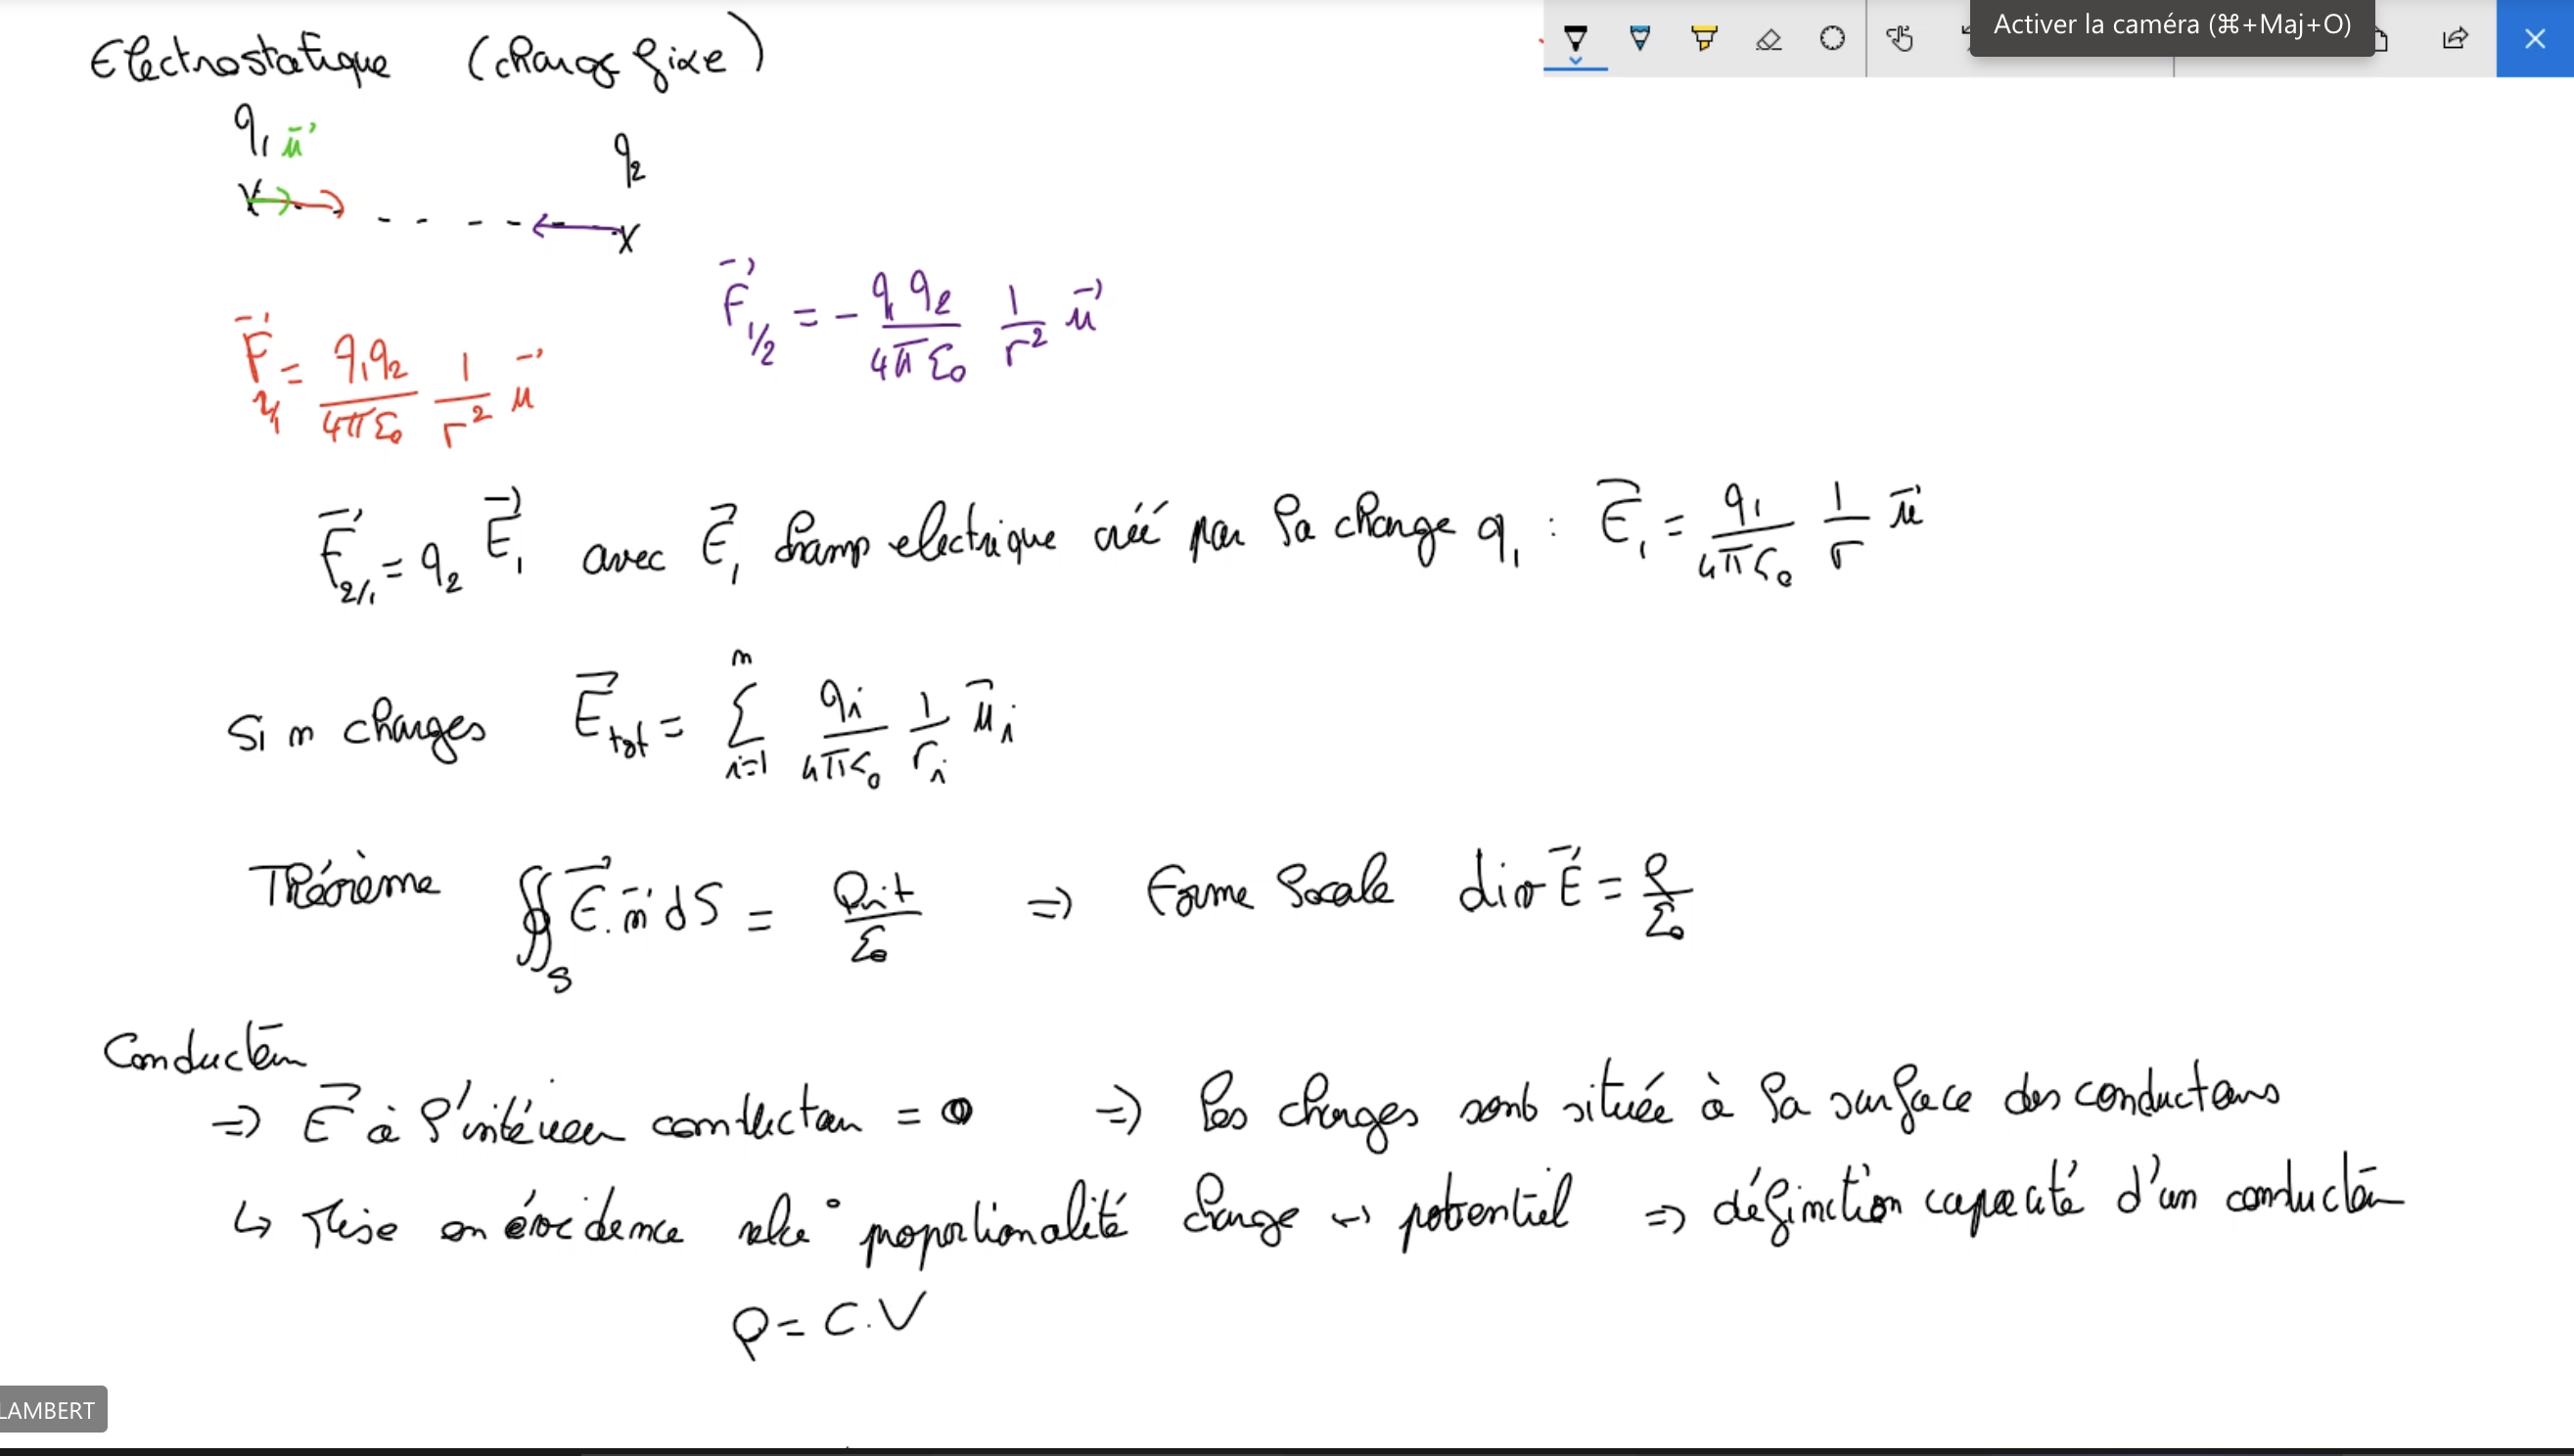 Activer la caméra (⌘+Maj+O)
Electrostatique (charge fixe)
q₁ u⃗
q₂
F⃗₁/₂ = - q₁q₂/4πε₀ 1/r² u⃗
F⃗₂/₁ = q₁q₂/4πε₀ 1/r² u⃗
F⃗₂/₁ = q₂ E⃗₁ avec E⃗₁ champ electrique créé par la charge q₁ : E⃗₁ = q₁/4πε₀ 1/r u⃗
Si n charges E⃗tot = Σ i=1 n qi/4πε₀ 1/ri u⃗i
Théorème ∯S E⃗.n⃗ dS = Qint/ε₀ ⇒ Forme locale div E⃗ = ρ/ε₀
Conducteur
⇒ E⃗ à l'intérieur conducteur = 0 ⇒ les charges sont située à la surface des conducteurs
↳ Mise en évidence relat° proportionalité charge ↔ potentiel ⇒ définition capacité d'un conducteur
Q = C.V
LAMBERT